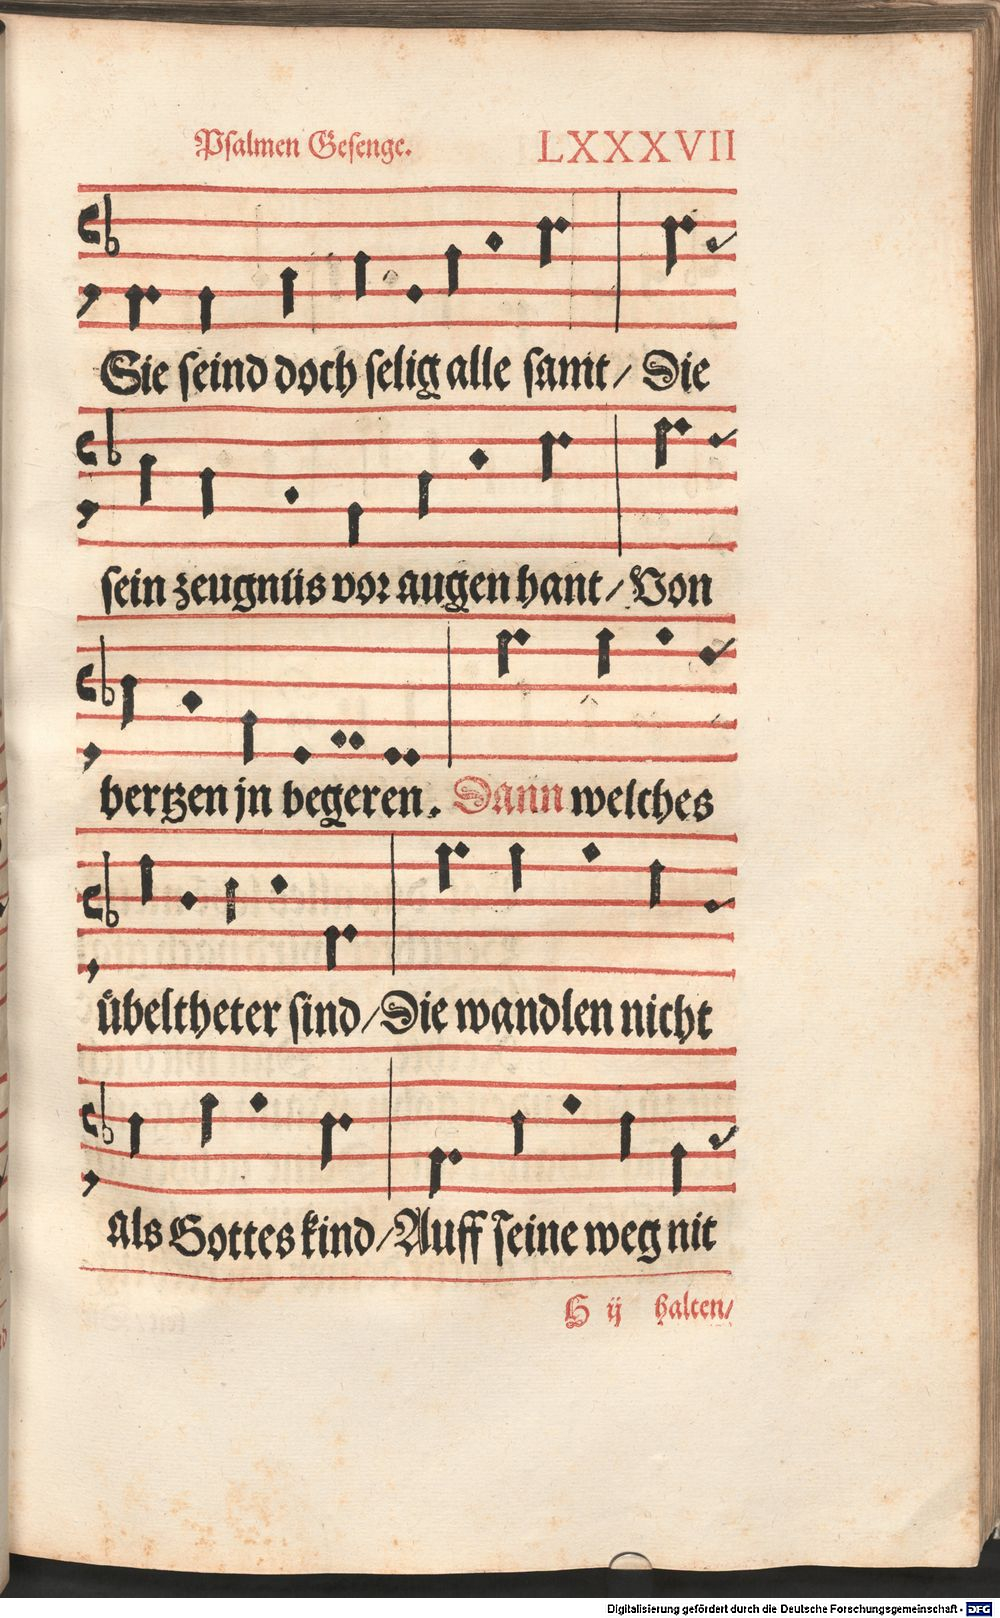 Psalmen Gesenge. LXXXVII
Sie seind doch selig alle samt / Die
sein zeugnüs vor augen hant / Von
hertzen jn begeren. Dann welches
übeltheter sind / Die wandlen nicht
als Gottes kind / Auff seine weg nit
H ij halten /
Digitalisierung gefördert durch die Deutsche Forschungsgemeinschaft - DFG